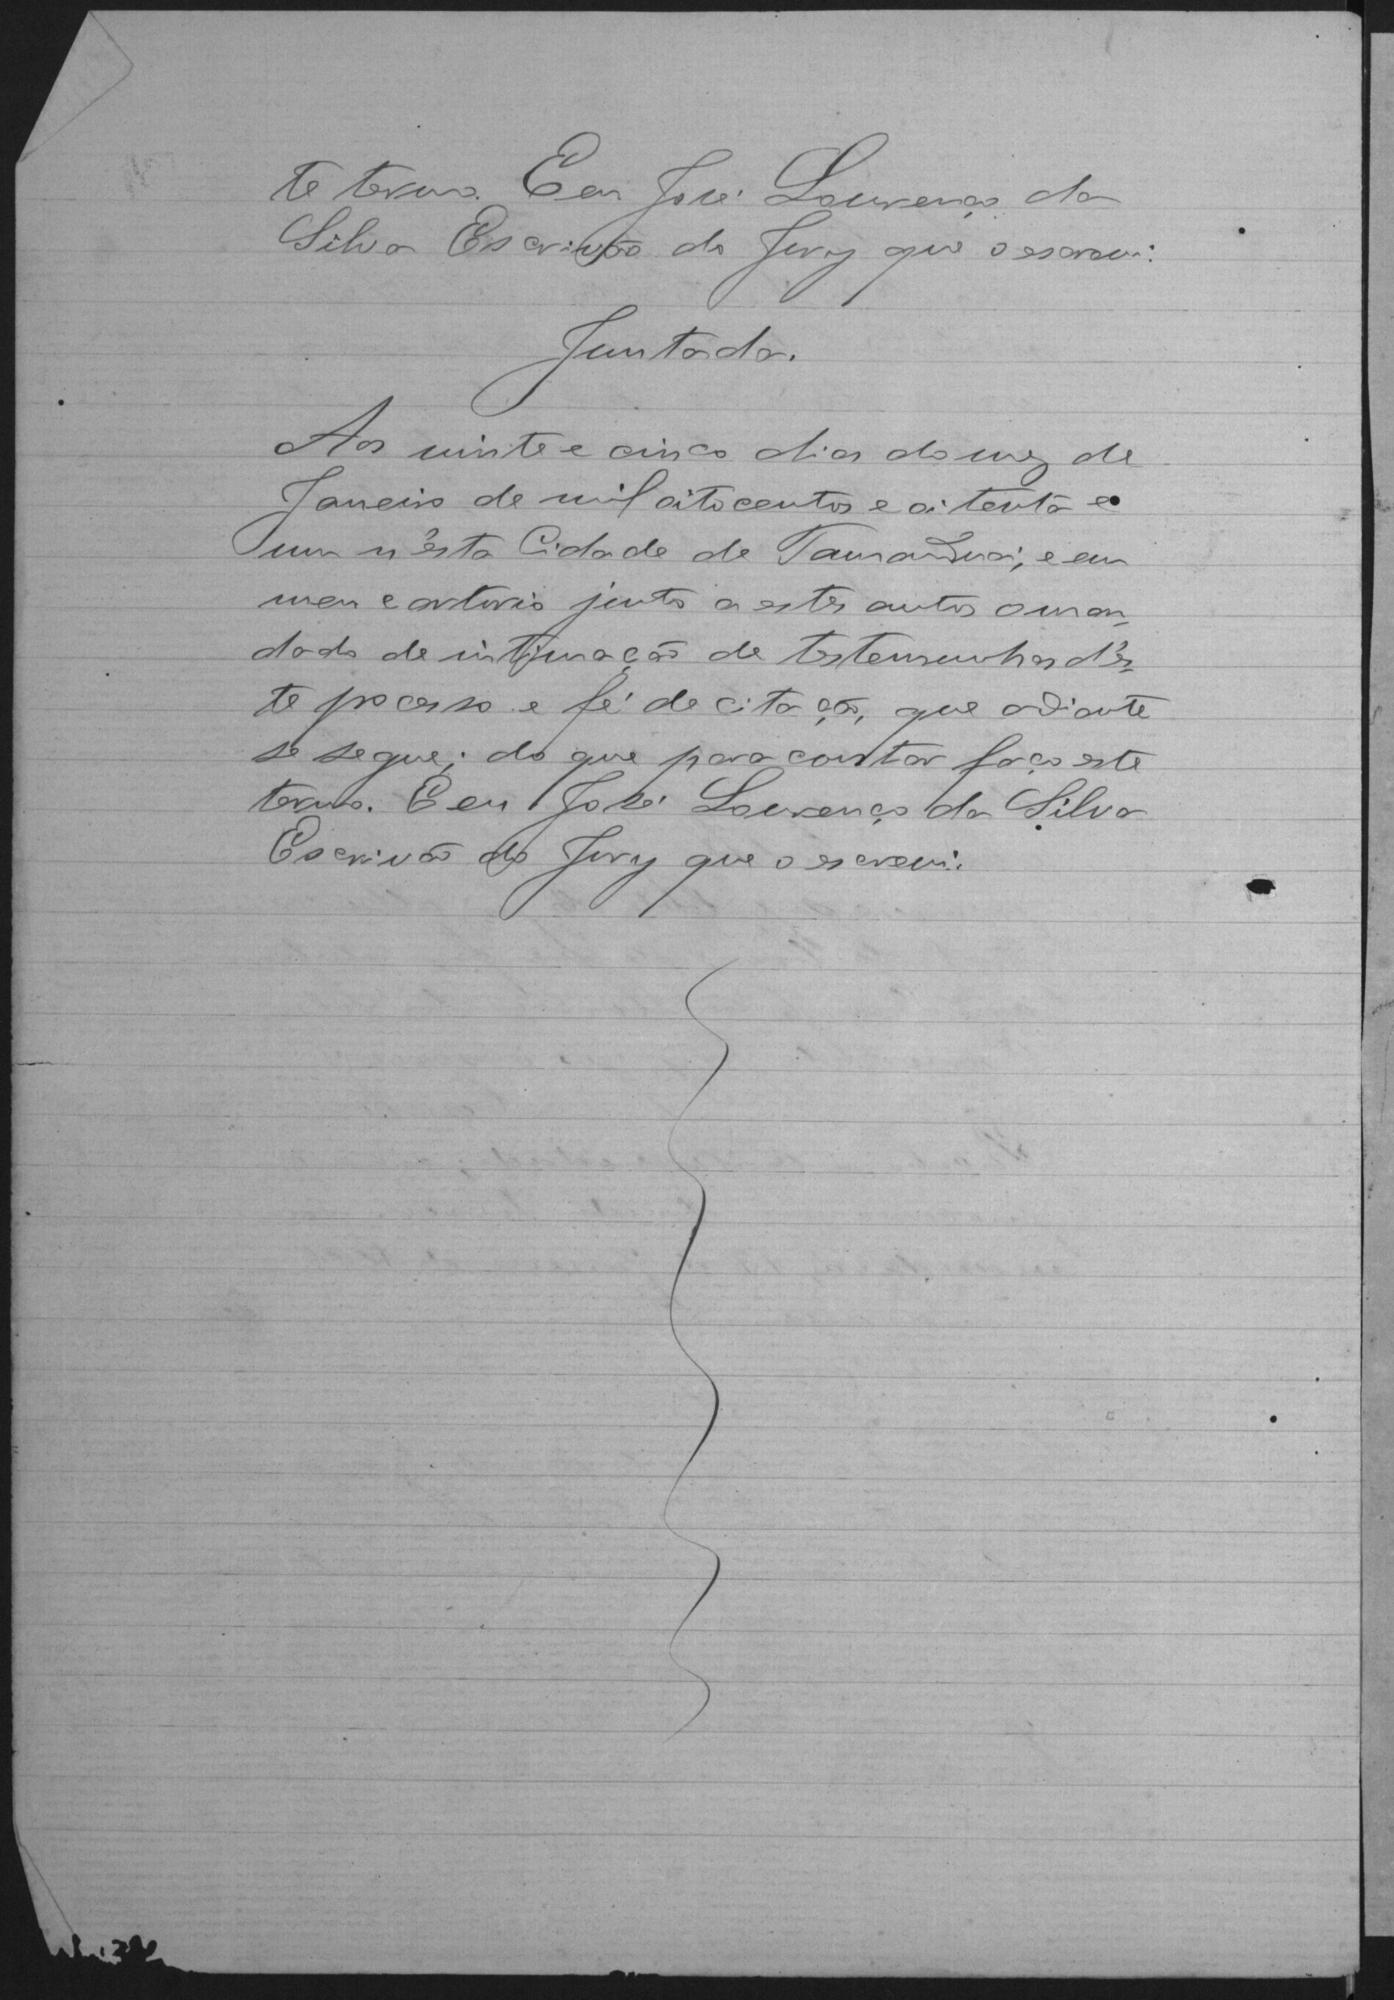 te termo. E eu José Lourenço da
Silva Escrivão do Jury que o escrevi.
Juntada.
Aos vinte e cinco dias do mez de
Janeiro de mil oitocentos e oitenta e
um n'ésta Cidade de Tamanduá, e em
meu cartorio junto a estes autos o man-
dado de intimação de testemunhas d'es-
te processo e fé de citação, que adiante
se segue; do que para constar faço este
termo. E eu José Lourenço da Silva
Escrivão do Jury que o escrevi.